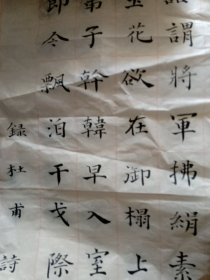 詔謂將軍拂絹素
玉花欲在御榻上
弟子幹韓早入室
即令飄泊干戈際
録杜甫詩